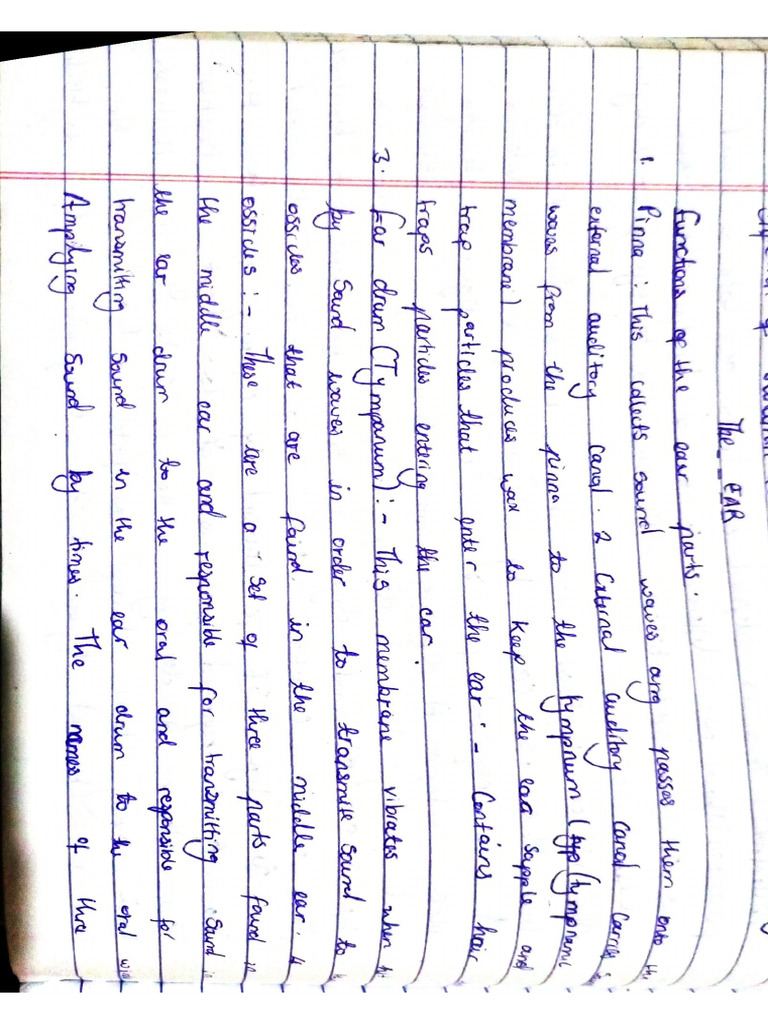 The EAR
Functions of the ear parts.
1. Pinna : This collects sound waves and passes them onto the
external auditory canal. 2 External auditory canal carries
waves from the pinna to the tympnum (typ(tympani
membrane) produces wax to keep the ear supple and
trap particles that enter the ear :- Contains hair
traps particles entering the ear.
3. Ear drum (Tympanum) :- This membrane vibrates when hi
by Sound waves in order to transmite sound to
ossicles that are faind in the middle ear. 4
ossicles :- These are a set of three parts found in
the middle ear and responsible for transmitting Sound
the ear drum to the oral and responsible for
transmitting Sound in the ear drum to the oral
Amplying Sound by times. The names of thre